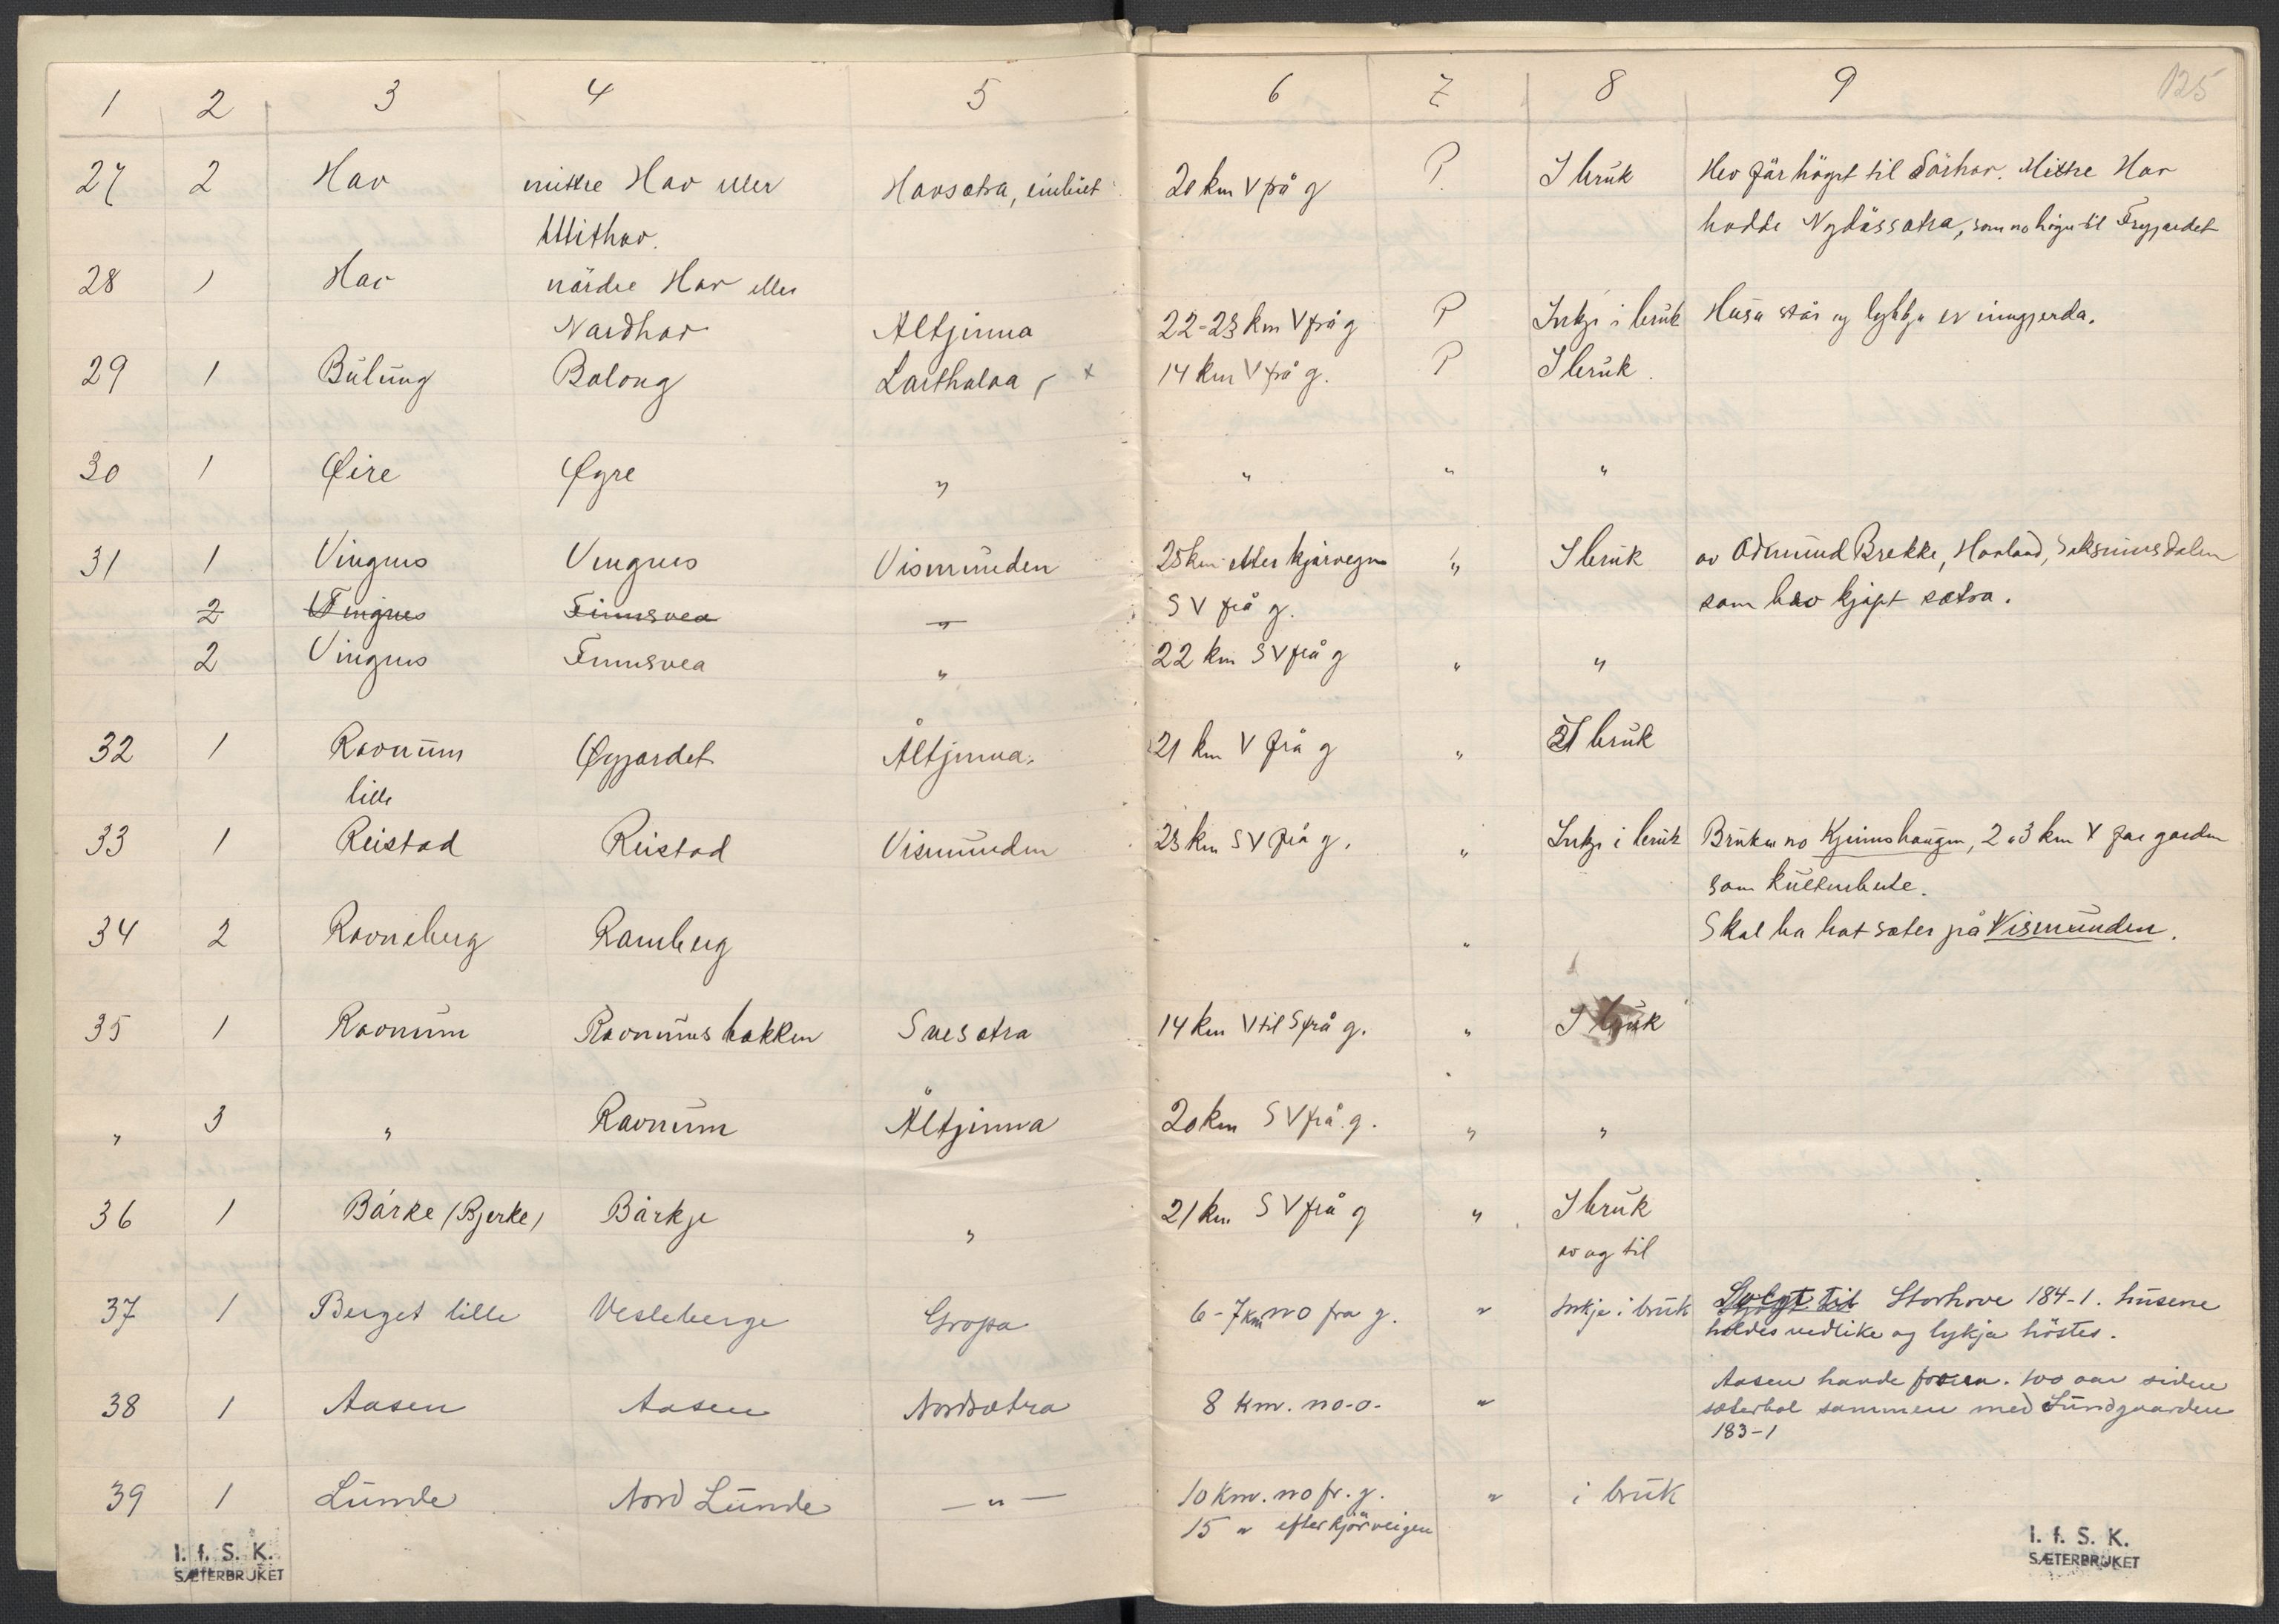 1 2 3 4 5 6 7 8 9 125
27 2 Hov mittre Hov eller Hovsætra, einbiet 20 km V frå g P. I bruk Hev før høyrt til Sørhov. Mittre Hov
Mithov. hadde Nylåssætra, som no høyrer til Frygardet
28 1 Hov nördre Hov eller
Nordhov Åltjinna 22-23 km V frå g P Inkje i bruk Husa står og lykkja er inngjerda.
29 1 Bulung Bolong Lasthølaa x 14 km V frå g. P I bruk.
30 1 Øire Øyre " " " "
31 1 Vingnes Vingnes Vismunden 25 km etter kjørvegen " I bruk av Odmund Brekke, Hovland, Saksumsdalen
2 Vingnes Finnsvea " S V frå g. som hev kjøpt sætra.
2 Vingnes Finnsvea " 22 km S V frå g " "
32 1 Rovnum Øygardet Åltjinna. 21 km V frå g " I bruk
lille
33 1 Reistad Reistad Vismunden 23 km S V frå g. " Inkje i bruk Bruker no Kjinnshaugen, 2 à 3 km V for garden
som kulturbeite.
34 2 Rovneberg Ramberg " Skal ha hat sæter på Vismunden.
35 1 Rovnum Rovnumsbakken Svesætra 14 km V til S frå g. " I bruk
" 3 " Rovnum Åltjinna 20 km S V frå g. " "
36 1 Bårke (Bjerke) Bårkje " 21 km S V frå g " I bruk
av og til
37 1 Berget lille Vesleberge Gropa 6-7 km no fra g. " Inkje i bruk Solgt til Storhove 184-1. husene
holdes vedlike og lykja höstes.
38 1 Aasen Aasen Nordsætra 8 km. no-o- " Aasen havde for ca. 100 aar siden
sæterbol sammen med Lundgaarden
183-1
39 1 Lunde Nord Lunde — " — 10 km. no fr. g. " i bruk
15 " efter kjörveigen
I. f. S. K.
SÆTERBRUKET
I. f. S. K.
SÆTERBRUKET